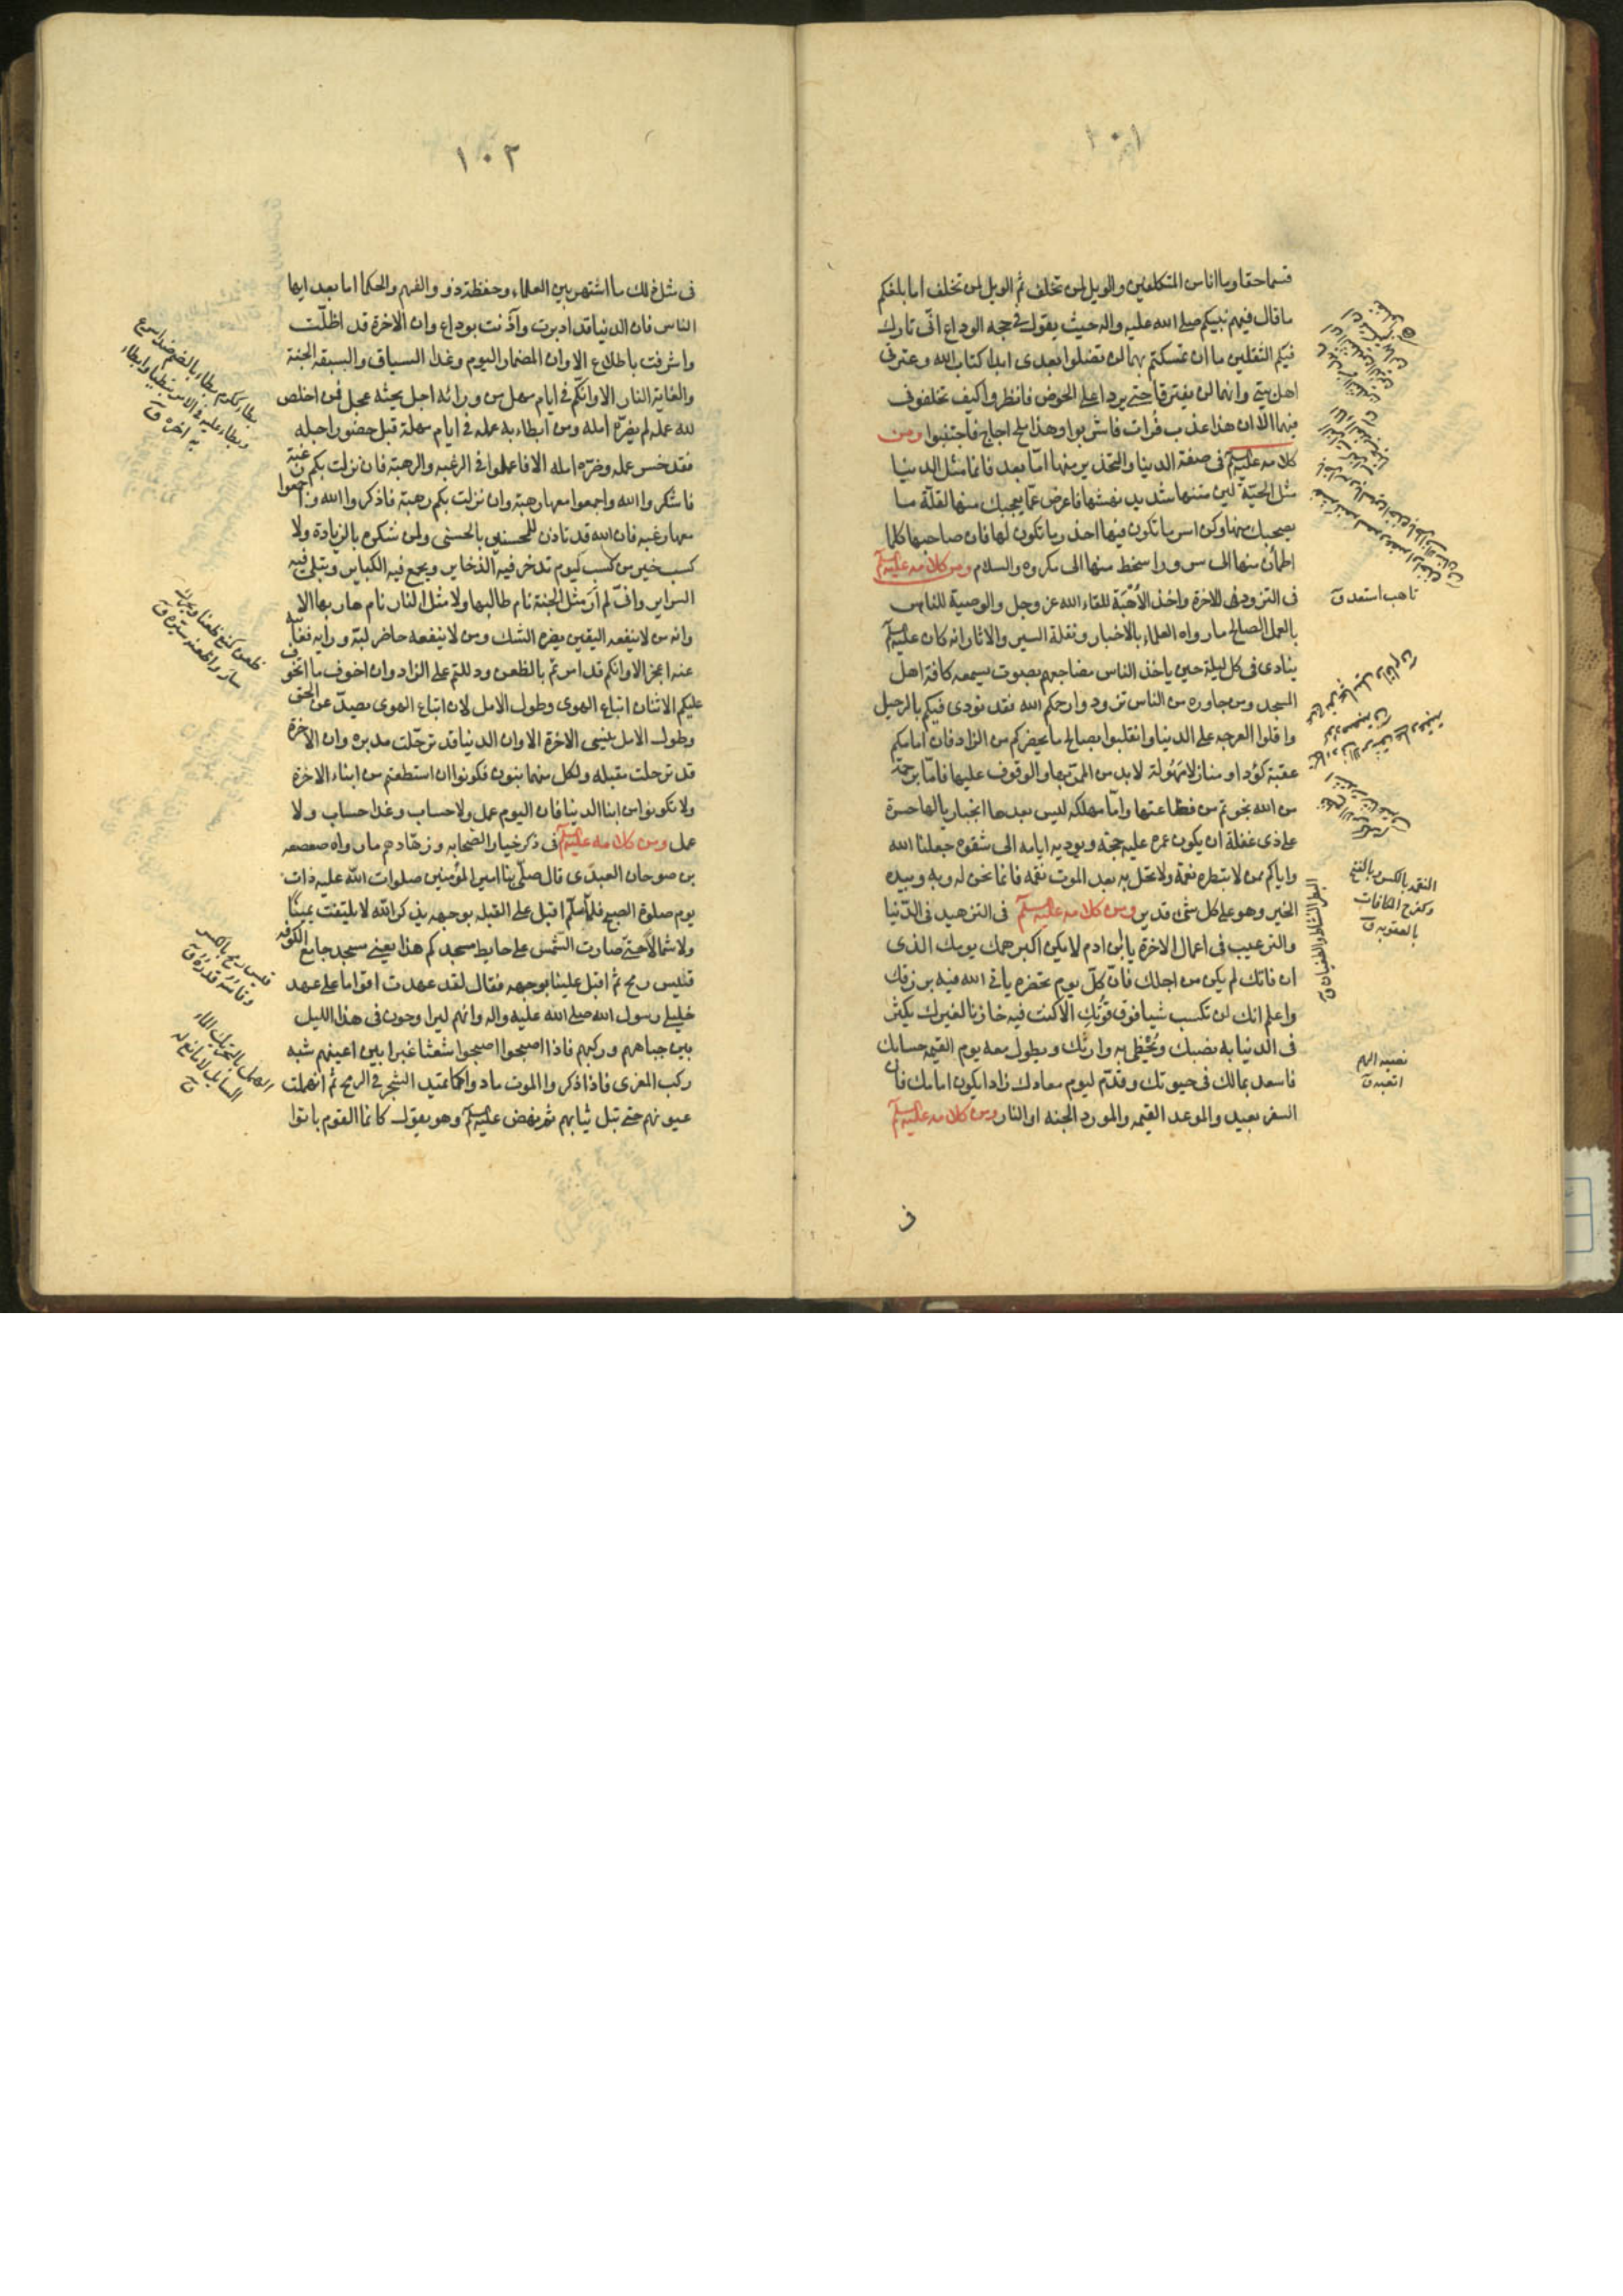 ١٠١
قسما حقا وما انا من المتكلفين والويل لمن تخلف ثم الويل لمن تخلف اما بلغكم
ما قال فيهم نبيكم صلى الله عليه واله حيث يقول في حجه الوداع انّى تارك
فيكم الثقلين ما ان تمسكتم بهما لن تضلوا بعدى ابدا كتاب الله وعترتى
اهل بيتى وانهما لن يفترقا حتى يردا على الحوض فانظروا كيف تخلفونى
فيهما الا ان هذا عذب فُرات فاشربوا وهذا ملح اجاج فاجتنبوا ومن
كلامه عليه السلم في صفة الدينا والتحذير منها امّا بعد فانما مثل الدينا
مثل الحيّة لين متنها شديد نهشها فاعرض عمّا يعجبك منها لقلّة ما
يصحبك منها وكن اسر ما تكون فيها احذر ما تكون لها فان صاحبها كلما
اطمأن منها الى سرور اسخط منها الى مكروه والسلام ومن كلامه عليه السلم
في التزود فى للاخرة واخذ الأُهْبَة للقاء الله عز وجل والوصية للناس
بالعمل الصالح ما رواه العلماء بالاخبار ونقلة السير والاثار انه كان عليه السلم
ينادى في كل ليلة حين ياخذ الناس مضاجعهم بصوت يسمعه كافة اهل
المسجد ومن جاوره من الناس تزودوا رحمكم الله فقد نودى فيكم بالرحيل
واقلوا العرجه على الدينا وانقلبوا بصالح ما يحضركم من الزاد فان امامكم
عقبة كؤدا ومنازلا مَهُولة لابد من الممرّ بها والوقوف عليها فامّا برحمة
من الله نجوتم من فظاعتها وامّا مهلكه ليس بعدها انجبار يا لها حسرة
على ذى غفلة ان يكون عمره عليه حجّة ويوديه ايامه الى شقوه جعلنا الله
واياكم ممن لا تبطره نعمة ولا تحل به بعد الموت نقمه فانما نحن له وبه وبيده
الخير وهو على كل شئ قدير ومن كلامه عليه السلم في التزهيد في الدّنيا
والترغيب في اعمال الاخرة يا بن ادم لا يكن اكبر همك يومك الذى
ان فاتك لم يكن من اجلك فانّ كلّ يوم تحضره ياتى الله فيه برزقك
واعلم انك لن تكسب شيا فوق قُوتك الا كنت فيه خازنا لغيرك يكثر
في الدنيا به نصبك ويُحْظى به وارثك ويطول معه يوم القيمه حسابك
فاسعد بمالك في حيوتك وقدّم ليوم معادك زادا يكون امامك فان
السفر بعيد والموعد القيمه والمورد الجنه او النار ومن كلامه عليه السلم
تاهب استعد ق
النقمه بالكسر بالفتح
وكفرح المكافات
بالعقوبه ق
البطر النشاط والطغيان ق
نصبه الهم
اتعبه ق
في
١٠٢
في مثل ذلك ما اشتهر بين العلماء وحفظه ذوو الفهم والحكما اما بعد ايها
الناس فان الدنيا قد ادبرت وآذنت بوداع وان الاخرة قد اظلّت
واشرفت باطلاع الا وان المضمار اليوم وغدا السباق والسبقه الجنة
والغاية النار الا وانّكم في ايام مهل من ورائه اجل يحثه عجل فمن اخلص
لله عمله لم يضرّه امله ومن ابطاء به عمله في ايام مهلة قبل حضور اجله
فقد خسر عمله وضرّه امله الا فاعملوا في الرغبه والرهبة فان نزلت بكم رغبة
فاشكروا الله واجمعوا معها رهبة وان نزلت بكم رهبة فاذكروا الله واجمعوا
معها رغبه فان الله قد تاذن للمحسنين بالحسنى ولمن شكره بالزيادة ولا
كسب خير من كسب ليوم تدخر فيه الذخاير ويجمع فيه الكباير وتبلى فيه
السراير وانّى لم أرَ مثل الجنة نام طالبها ولا مثل النار نام هاربها الا
وانه من لا ينفعه اليقين يضره الشك ومن لا ينفعه حاضر لبّه ورأيه فغائبه
عنه اعجز الا وانكم قد امرتم بالظعن ودللتم على الزاد وان اخوف ما اتخوف
عليكم الاثنان اتباع الهوى وطول الامل لان اتباع الهوى يصدّ عن الحق
وطول الامل ينسى الاخرة الا وان الدنيا قد ترحّلت مدبره وان الاخرة
قد ترحلت مقبله ولكل منهما بنون فكونوا ان استطعتم من ابناء الاخرة
ولا تكونوا من ابنا الدينا فان اليوم عمل ولا حساب وغدا حساب ولا
عمل ومن كلامه عليه السلم في ذكر خيار الصّحابه وزهّادهم ما رواه صعصعه
بن صوحان العبدى قال صلّى بنا امير المؤمنين صلوات الله عليه ذات
يوم صلوة الصبح فلمّا سلّم اقبل على القبله بوجهه يذكر الله لا يلتفت يمينًا
ولا شمالًا حتى صارت الشمس على حايط مسجدكم هذا يعنى مسجد جامع الكوفه
قليس رمح ثم اقبل علينا بوجهه فقال لقد عهدت اقواما على عهد
خليلى رسول الله صلى الله عليه واله وانهم ليراوحون في هذا الليل
بين جباههم وركبهم فاذا اصبحوا اصبحوا شعثا غبرا بين اعينهم شبه
ركب المعزى فاذا ذكروا الموت مادوا كما تميد الشجر في الريح ثم انهملت
عيونهم حتى تبل ثيابهم ثم نهض عليه السلم وهو يقول كانما القوم باتوا
بطاء ككرم بطاء بالضم ضد اسرع
وبطاء عليه في الامر تبطيا وابطاء
به اخره ق
ظعن كمنع ظعنا ويحرك
سار واظعنه سيّره ق
قليس رمح بالكسر
وقاسه قدره ق
الهمل بالتحريك الماء
السايل لا مانع له
ق